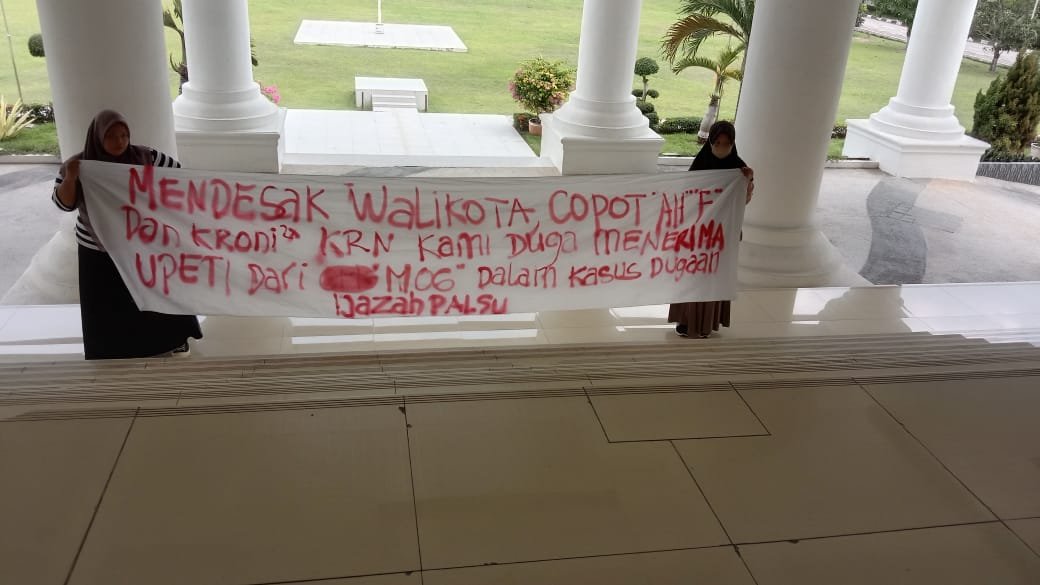 MENDESAK WALIKOTA COPOT "AH" "F"
Dan KRONI²ⁿ KRN KAMI DUGA MENERIMA
UPETI DARI MOG" DALAM KASUS DUGAAN
IJazah PALSU